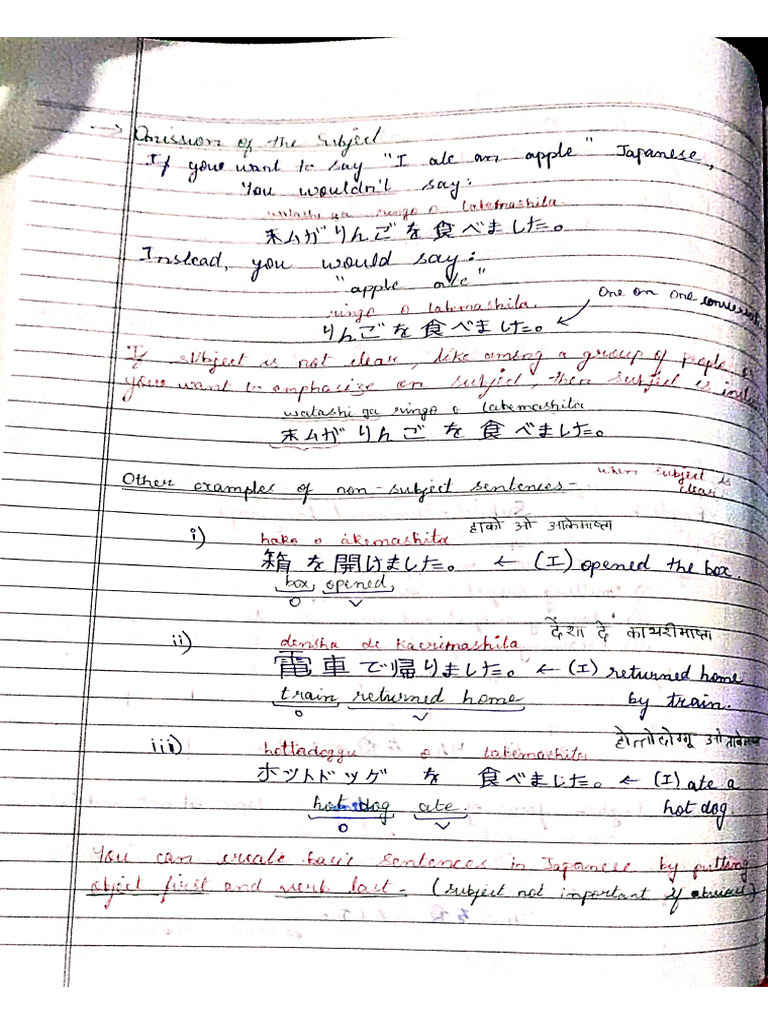 → Omission of the Subject
If you want to say "I ate an apple" Japanese,
You wouldn't say:
watashi ga ringo o tabemashita
私がりんごを食べました。
Instead, you would say:
"apple ate"
ringo o tabemashita. One on one
りんごを食べました。 ←
If subject is not clear, like among a group of people or
you want to emphasize on subject, then subject is
watashi ga ringo o tabemashita
私がりんごを食べました。
Other examples of non-subject sentences - when subject is clear
i) hako o akemashita हाको ओ आकेमाष्ता
箱を開けました。 ← (I) opened the box.
box opened
O V
ii) densha de kaerimashita देंशा दे काएरीमाष्ता
電車で帰りました。 ← (I) returned home
train returned home by train.
O V
iii) hottodoggu o tabemashita होत्तोदोग्गू ओ
ホットドッグ を 食べました。 ← (I) ate a
hot dog ate. hot dog.
O V
You can create basic sentences in Japanese by putting
object first and verb last - (subject not important if obvious)